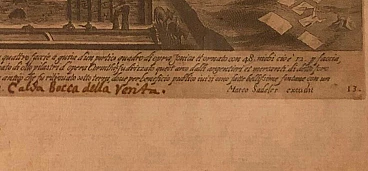 quattro faccie a guisa d'un portico quadro di opera Ionica et ornato con 48. nichi cioè 12. p faccia
ato di otto pilastri d'opera Corinthia fu drizzato quest'arco dalli argentieri et mercanti di
antico che fu ritrovato sotto terra, dove per beneficio publico vi si sono fatte bellissime fontane con un
Calsa Bocca della Verità. Marco Sadeler excudit 13.